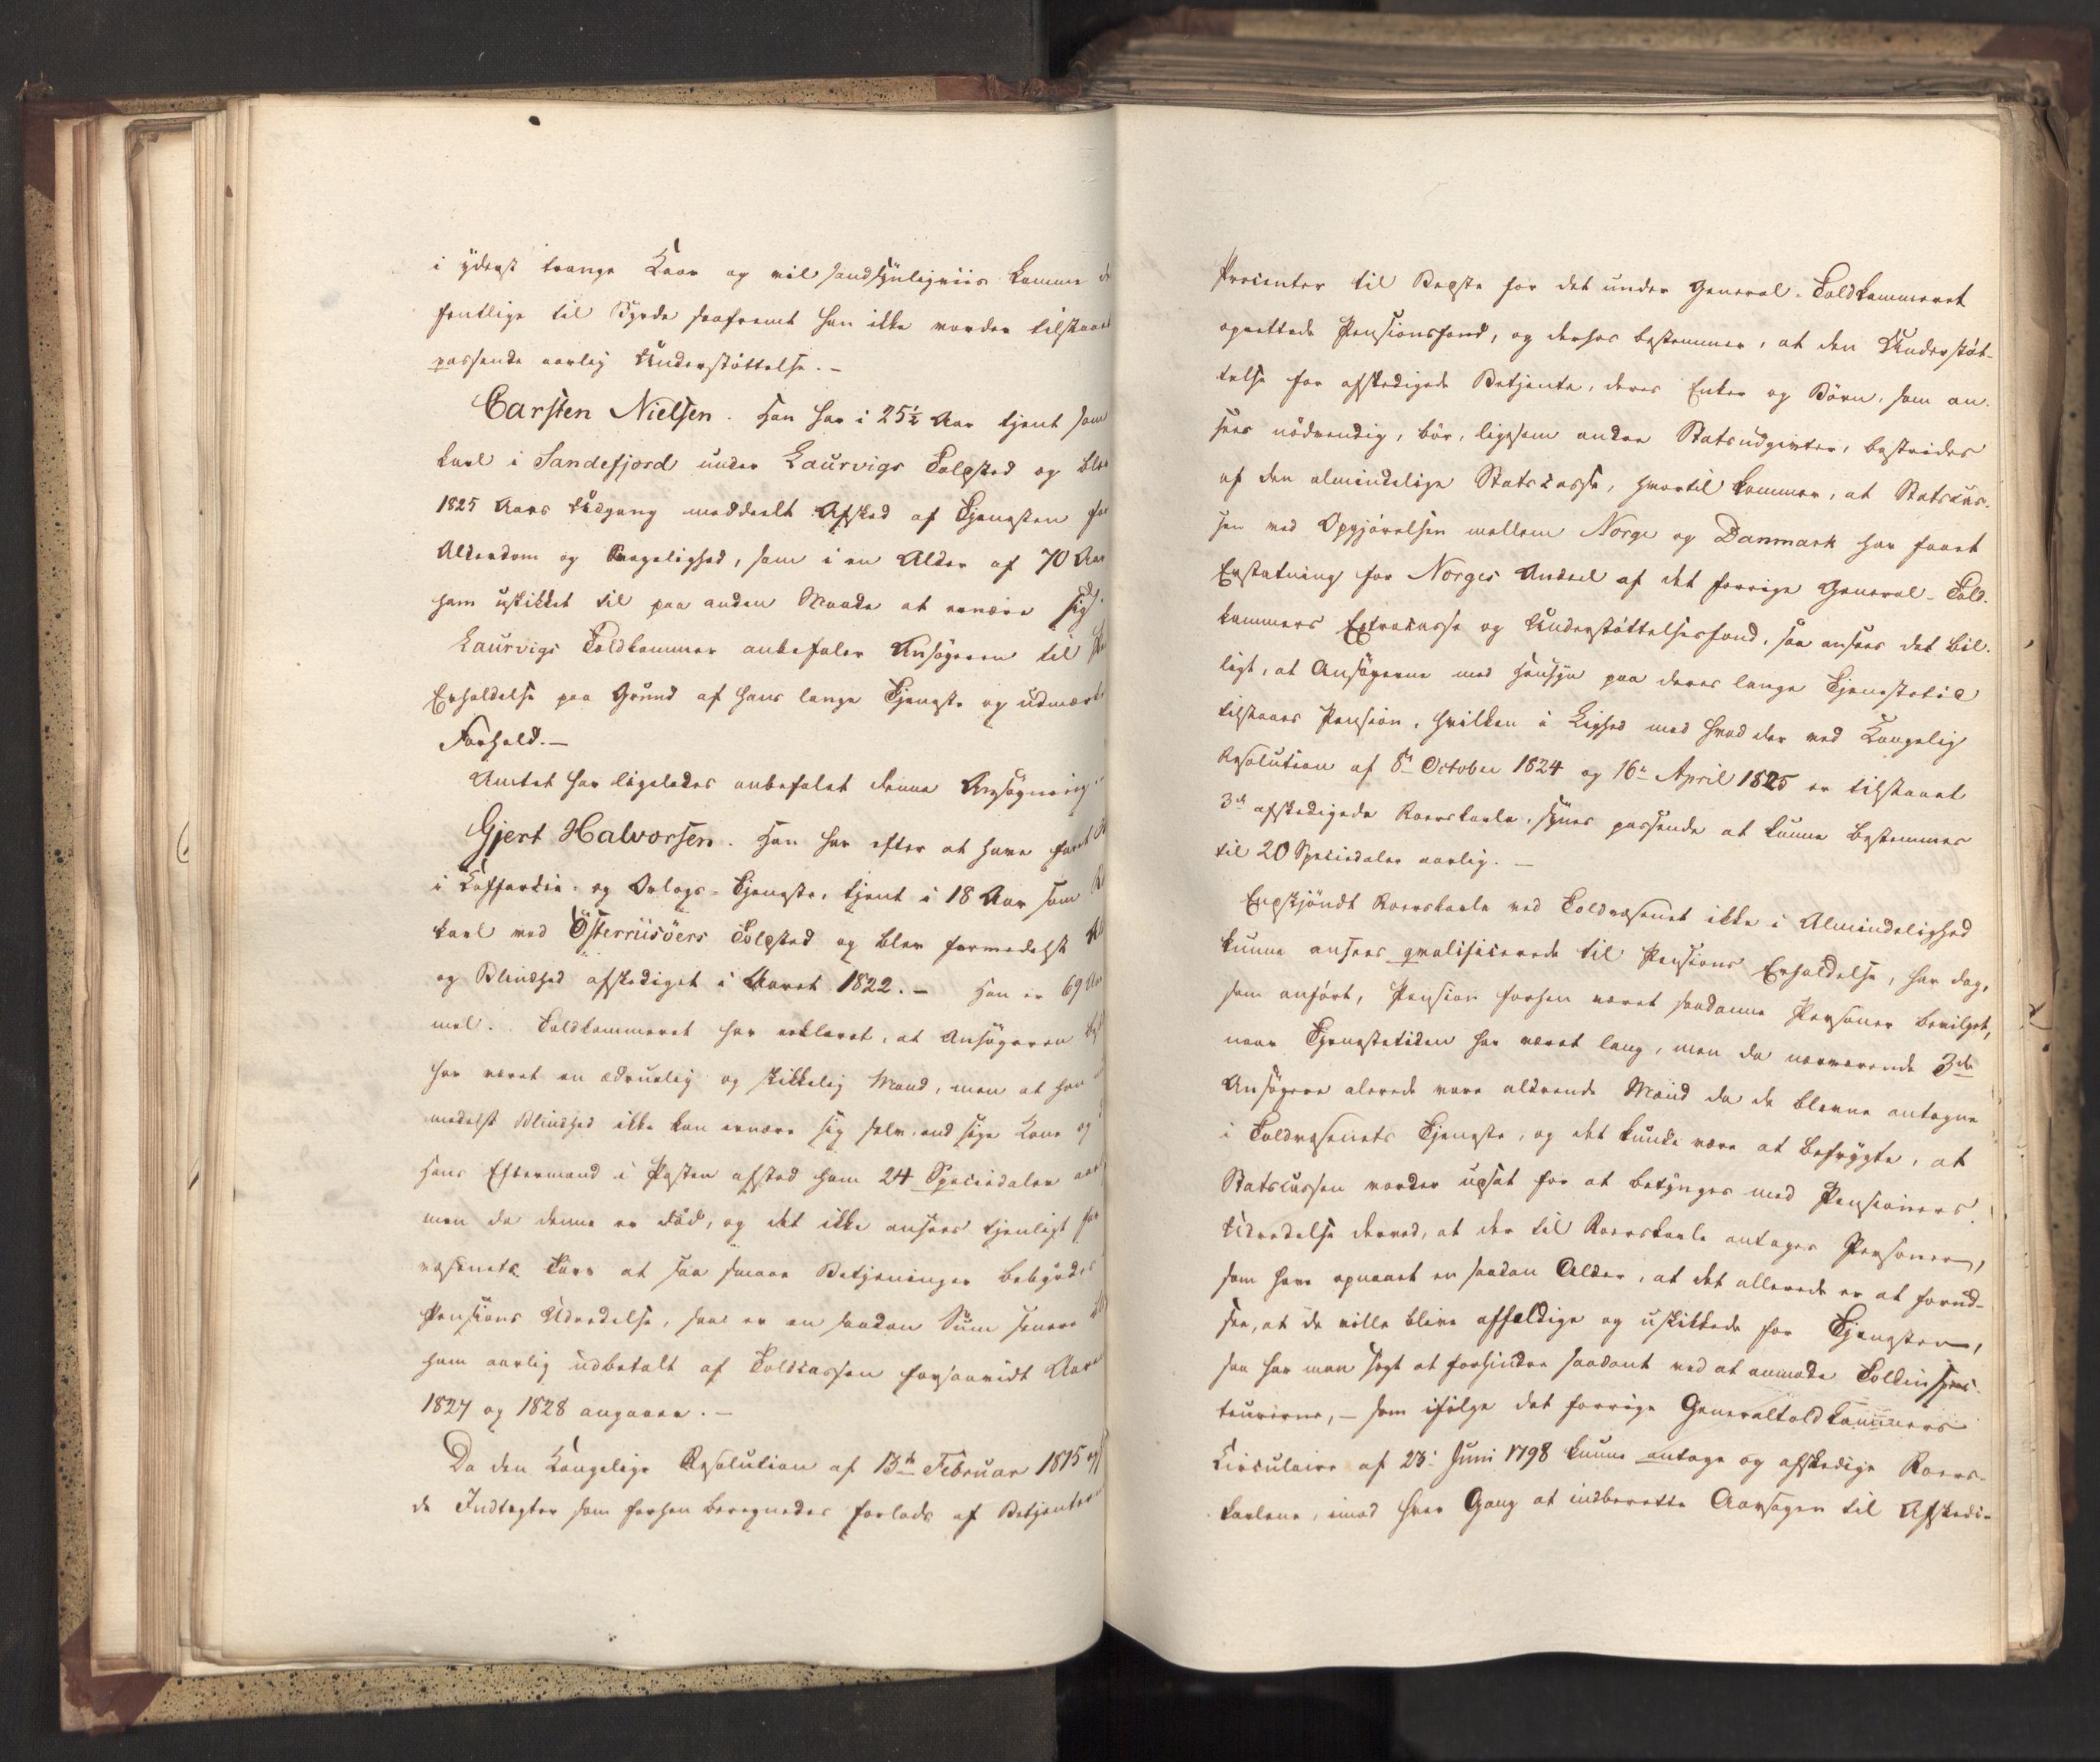 i yderst trange Kaar og vil sandsynligviis komme
fentlige til Byrde saafremt han ikke vorder tilstaaet
passende aarlig Understöttelse. –
Carsten Nielsen. Han har i 25½ Aar tjent som
karl i Sandefjord under Laurvigs Toldsted og blev
1825 Aars Udgang meddeelt Afsked af Tjenesten for
Alderdom og Svagelighed, som i en Alder af 70 Aar
ham uskikket til paa anden Maade at ernære sig.
Laurvigs Toldkammer anbefaler Ansögeren til
Erholdelse paa Grund af hans lange Tjeneste og udmærke
Forhold. –
Amtet har ligeledes anbefalet denne Ansögning.
Gjert Halvorsen. Han har efter at have faret
i Koffardie- og Orlogs-Tjeneste, tjent i 18 Aar som
karl ved Österriisöers Toldsted og blev formedelst
og Blindhed afskediget i Aaret 1822. – Han er 69 Aar
mel. Toldkammeret har erklæret, at Ansögeren
har været en ædruelig og skikkelig Mand, men at han
medelst Blindhed ikke kan ernære sig selv, end sige Kone og
Hans Eftermand i Posten afstod ham 24 Speciedaler
men da denne er död, og det ikke ansees tjenligt for
væsenets Tarv at saa smaae Betjeninger bebyrdes
Pensions Udredelse, saa er en saadan Sum senere
ham aarlig udbetalt af Toldcassen forsaavidt Aarene
1827 og 1828 angaaer. –
Da den Kongelige Resolution af 13de Februar 1815
de Indtægter som forhen beregnedes forlods af Betjentes
Procenter til Bedste for det under General-Toldkammeret
oprettede Pensionsfond, og derhos bestemmer, at den Understöt-
telse for afskedigede Betjente, deres Enker og Börn, som an-
sees nödvendig, bör, ligesom andre Statsudgivter, bestrides
af den almindelige Statscasse, hvortil kommer, at Statscas-
sen ved Opgjörelsen mellem Norge og Danmark har faaet
Erstatning for Norges Andeel af det forrige General-Told-
kammers Extracasse og Understöttelsesfond, saa ansees det bil-
ligt, at Ansögerne med Hensyn paa deres lange Tjenestetid
tilstaaes Pension, hvilken i Lighed med hvad der ved Kongelig
Resolution af 8de October 1824 og 16de April 1825 er tilstaaet
3de afskedigede Roerskarle, synes passende at kunne bestemmes
til 20 Speciedaler aarlig. –
Endskjöndt Roerskarle ved Toldvæsenet ikke i Almindelighed
kunne ansees qvalificerede til Pensions Erholdelse, har dog,
som anfört, Pension forhen været saadanne Personer bevilget,
naar Tjenestetiden har været lang, men da nærværende 3de
Ansögere alerede vare aldrende Mænd da de bleve antagne
i Toldvæsenets Tjeneste, og det kunde være at befrygte, at
Statscassen vorder udsat for at betynges med Pensioners
Udredelse derved, at der til Roerskarle antages Personer,
som have opnaaet en saadan Alder, at det allerede er at forud-
see, at de ville blive affældige og uskikkede for Tjenesten,
saa har man sögt at forhindre saadant ved at anmode Toldinspec-
teurerne, – som ifölge det forrige Generaltoldkammers
Circulaire af 23. Juni 1798 kunne antage og afskedige Roers-
karlene, imod hver Gang at indberette Aarsagen til Afskedi-